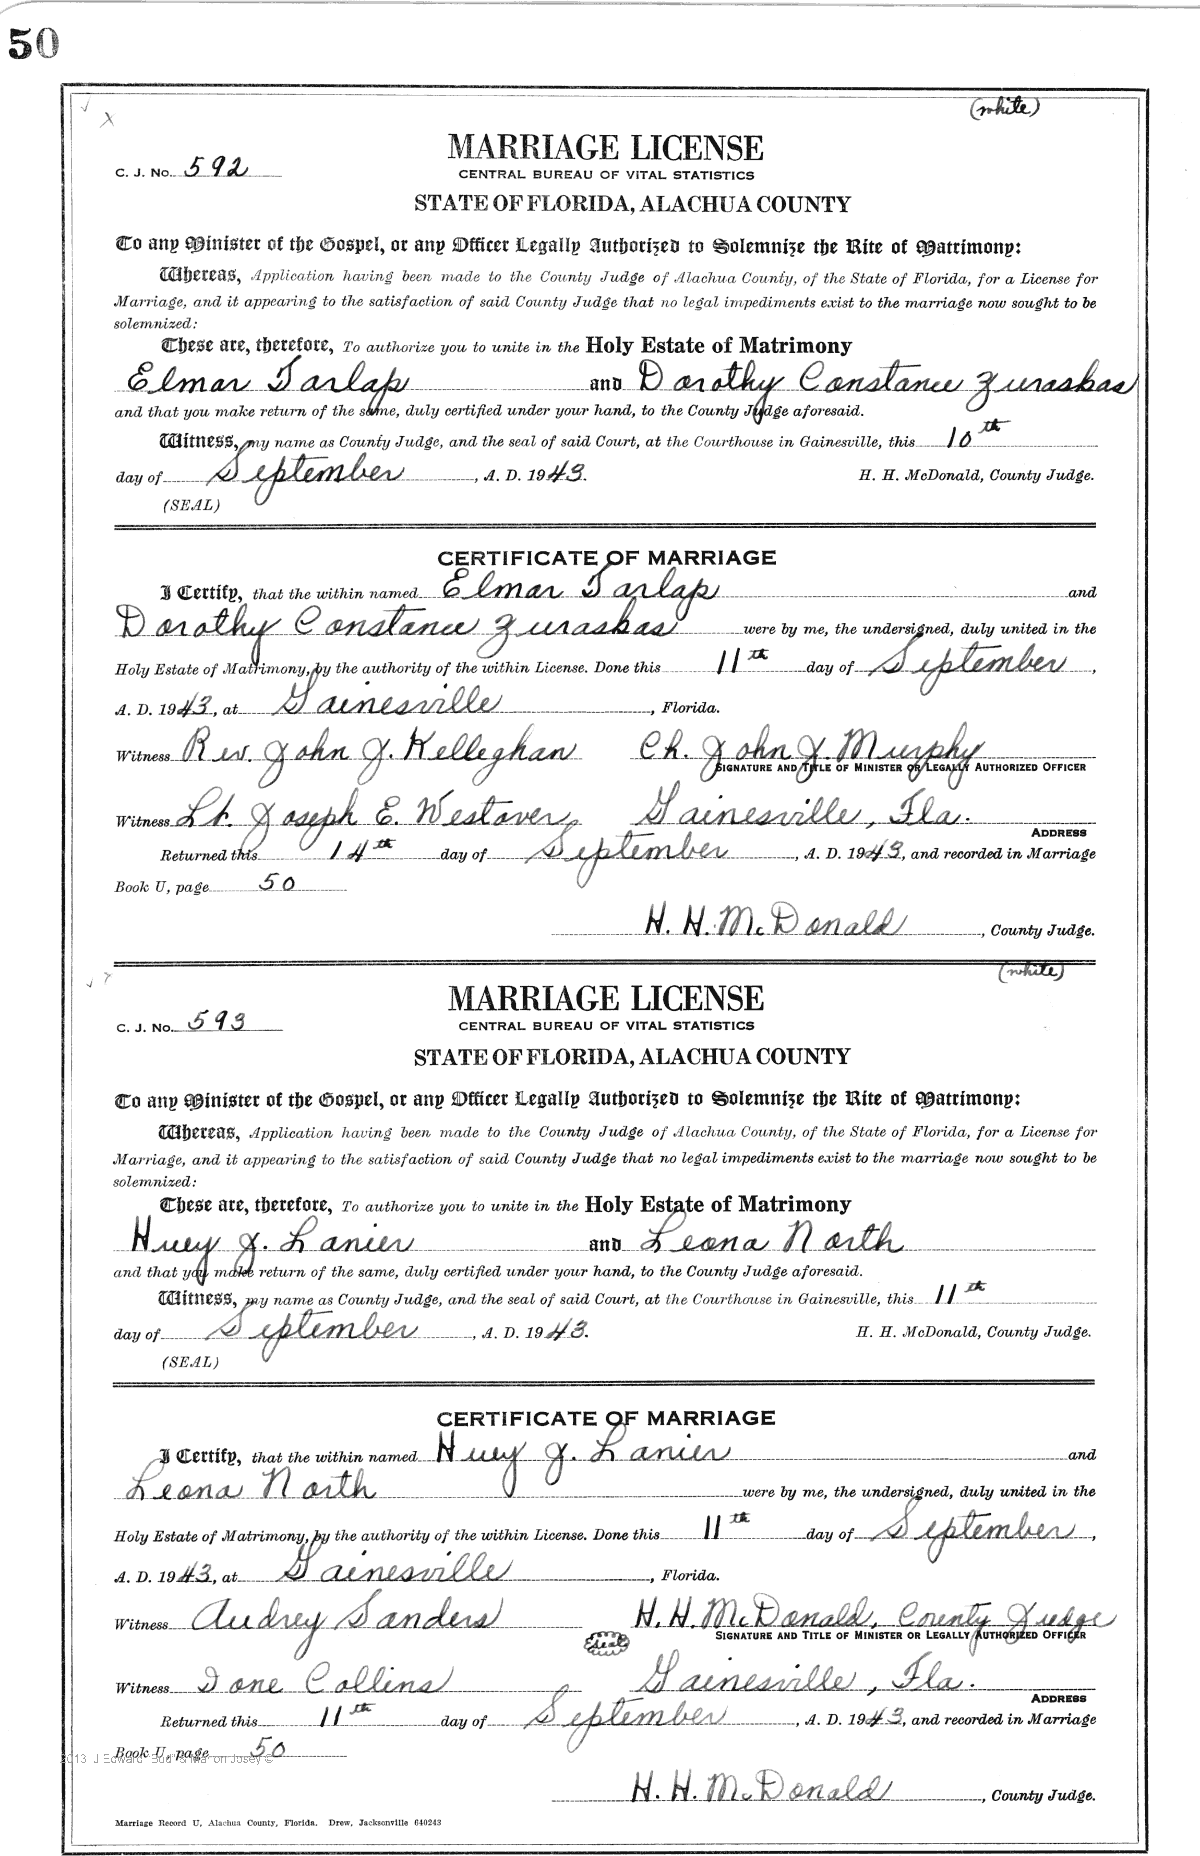 50
(white)
MARRIAGE LICENSE
C. J. No. 592
CENTRAL BUREAU OF VITAL STATISTICS
STATE OF FLORIDA, ALACHUA COUNTY
To any Minister of the Gospel, or any Officer Legally Authorized to Solemnize the Rite of Matrimony:
Whereas, Application having been made to the County Judge of Alachua County, of the State of Florida, for a License for
Marriage, and it appearing to the satisfaction of said County Judge that no legal impediments exist to the marriage now sought to be
solemnized:
These are, therefore, To authorize you to unite in the Holy Estate of Matrimony
Elmar Tarlap and Dorothy Constance Zuraskas
and that you make return of the same, duly certified under your hand, to the County Judge aforesaid.
Witness, my name as County Judge, and the seal of said Court, at the Courthouse in Gainesville, this 10th
day of September, A. D. 1943. H. H. McDonald, County Judge.
(SEAL)
CERTIFICATE OF MARRIAGE
I Certify, that the within named Elmar Tarlap and
Dorothy Constance Zuraskas were by me, the undersigned, duly united in the
Holy Estate of Matrimony, by the authority of the within License. Done this 11th day of September,
A. D. 1943, at Gainesville, Florida.
Witness Rev. John J. Kelleghan Ch. John J. Murphy
SIGNATURE AND TITLE OF MINISTER OR LEGALLY AUTHORIZED OFFICER
Witness Lt. Joseph E. Westover Gainesville, Fla.
ADDRESS
Returned this 14th day of September, A. D. 1943, and recorded in Marriage
Book U, page 50
H. H. McDonald, County Judge.
(white)
MARRIAGE LICENSE
C. J. No. 593
CENTRAL BUREAU OF VITAL STATISTICS
STATE OF FLORIDA, ALACHUA COUNTY
To any Minister of the Gospel, or any Officer Legally Authorized to Solemnize the Rite of Matrimony:
Whereas, Application having been made to the County Judge of Alachua County, of the State of Florida, for a License for
Marriage, and it appearing to the satisfaction of said County Judge that no legal impediments exist to the marriage now sought to be
solemnized:
These are, therefore, To authorize you to unite in the Holy Estate of Matrimony
Huey J. Lanier and Leona North
and that you make return of the same, duly certified under your hand, to the County Judge aforesaid.
Witness, my name as County Judge, and the seal of said Court, at the Courthouse in Gainesville, this 11th
day of September, A. D. 1943. H. H. McDonald, County Judge.
(SEAL)
CERTIFICATE OF MARRIAGE
I Certify, that the within named Huey J. Lanier and
Leona North were by me, the undersigned, duly united in the
Holy Estate of Matrimony, by the authority of the within License. Done this 11th day of September,
A. D. 1943, at Gainesville, Florida.
Witness Audrey Sanders H. H. McDonald, County Judge
Seal SIGNATURE AND TITLE OF MINISTER OR LEGALLY AUTHORIZED OFFICER
Witness Ione Collins Gainesville, Fla.
ADDRESS
Returned this 11th day of September, A. D. 1943, and recorded in Marriage
Book U, page 50
H. H. McDonald, County Judge.
Marriage Record U, Alachua County, Florida. Drew, Jacksonville 640243